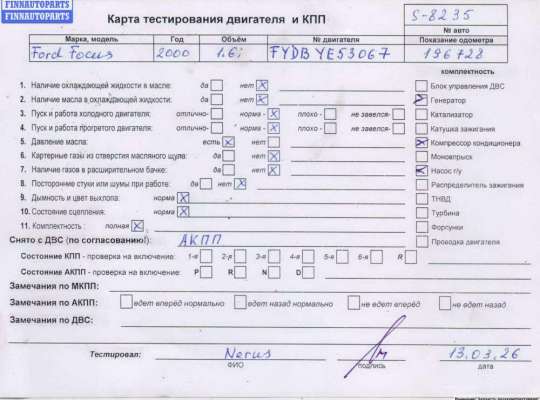 FINNAUTOPARTS
FINNAUTOPARTS
Карта тестирования двигателя и КПП
S-8235
№ авто
Марка, модель Год Объём № двигателя Показание одометра
Ford Focus 2000 1.6i FYDB YE53067 196728
комплектность
1. Наличие охлаждающей жидкости в масле: да нет X Блок управления ДВС
2. Наличие масла в охлаждающей жидкости: да нет X Генератор
3. Пуск и работа холодного двигателя: отлично- норма - X плохо - не завелся- Катализатор
4. Пуск и работа прогретого двигателя: отлично- норма - X плохо - не завелся- Катушка зажигания
5. Давление масла: есть X нет Компрессор кондиционера
6. Картерные газы из отверстия масляного щупа: да нет X Моновпрыск
7. Наличие газов в расширительном бачке: да нет X Насос г/у
8. Посторонние стуки или шумы при работе: да нет X Распределитель зажигания
9. Дымность и цвет выхлопа: норма X ТНВД
10. Состояние сцепления: норма X Турбина
11. Комплектность : полная X Форсунки
Снято с ДВС (по согласованию): АКПП Проводка двигателя
Состояние КПП - проверка на включение: 1-я 2-я 3-я 4-я 5-я 6-я R
Состояние АКПП - проверка на включение: P R N D
Замечания по МКПП:
Замечания по АКПП: едет вперёд нормально едет назад нормально не едет вперёд не едет назад
Замечания по ДВС:
Тестировал: Nerus 13.03.26
ФИО подпись дата